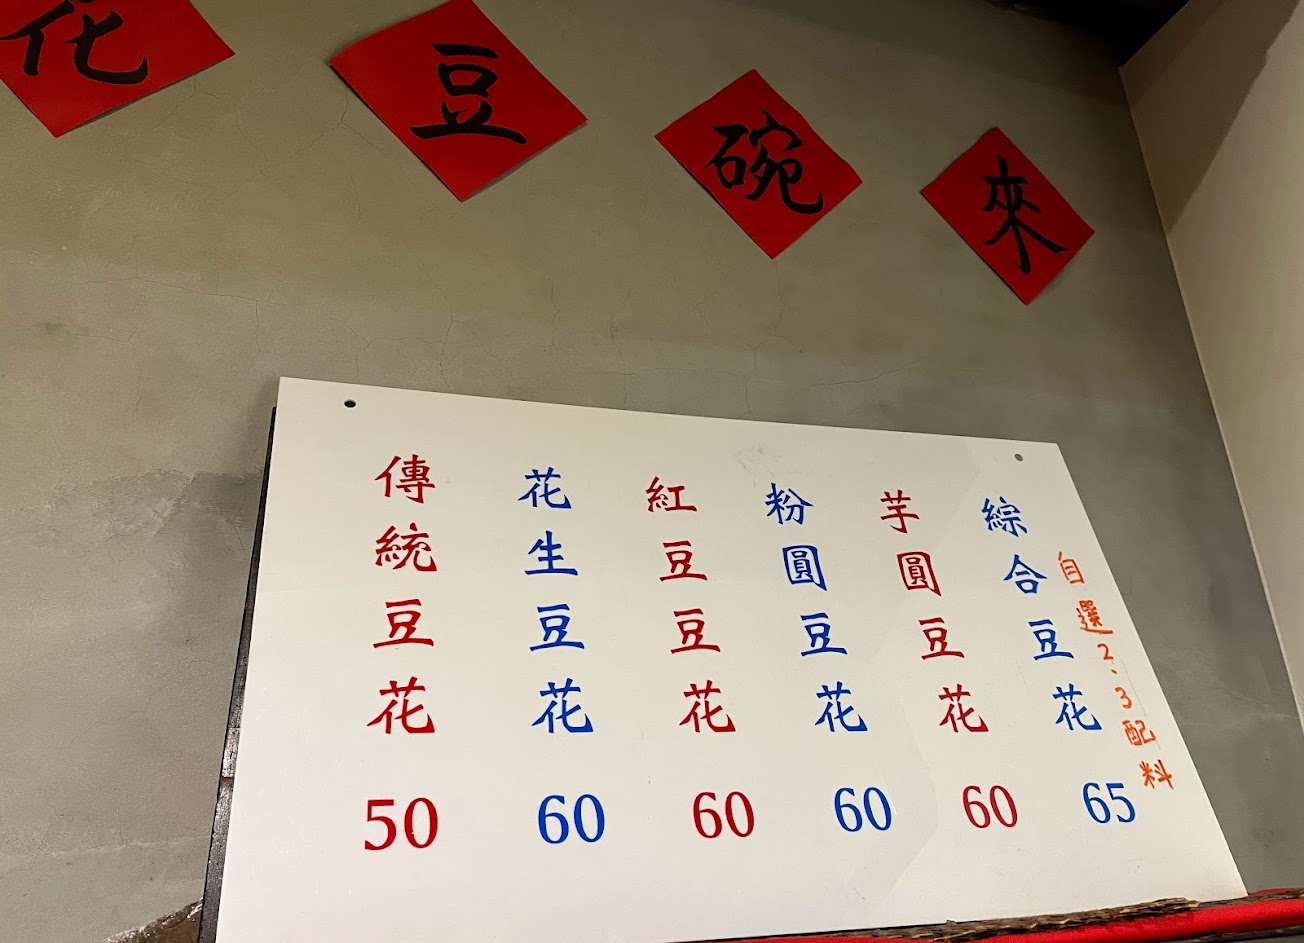 來碗豆花
傳統豆花
50
花生豆花
60
紅豆豆花
60
粉圓豆花
60
芋圓豆花
60
綜合豆花
65
自選2、3配料